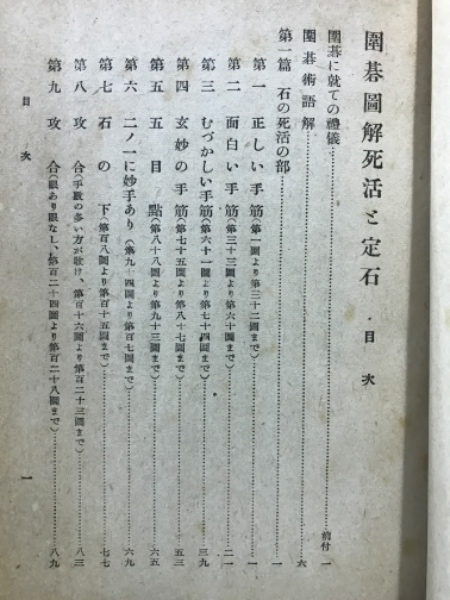 圍碁圖解死活と定石 目次
圍碁に就ての禮儀……前付 一
圍碁術語解……六
第一篇 石の死活の部……一
第一 正しい手筋(第一圖より第三十二圖まで)……一
第二 面白い手筋(第三十三圖より第六十圖まで)……二一
第三 むづかしい手筋(第六十一圖より第七十四圖まで)……三九
第四 玄妙の手筋(第七十五圖より第八十七圖まで)……五三
第五 五目點(第八十八圖より第九十三圖まで)……六五
第六 二ノ一に妙手あり(第九十四圖より第百七圖まで)……六九
第七 石の下(第百八圖より第百十五圖まで)……七七
第八 攻合(手數の多い方が敗け、第百十六圖より第百二十三圖まで)……八三
第九 攻合(眼あり眼なし、第百二十四圖より第百二十八圖まで)……八九
目次 一